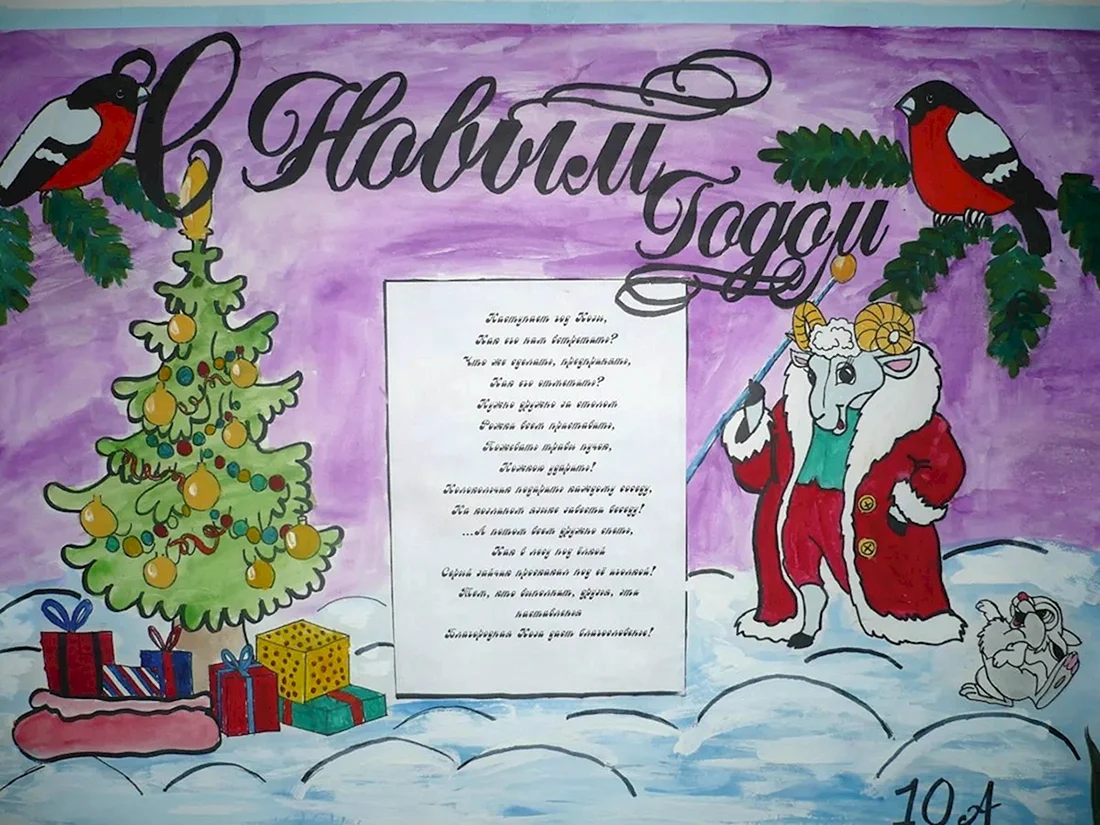 С Новым
Годом
Наступает год Козы,
Как его нам встретить?
Что же сделать, предпринять,
Как его отметить?
Нужно дружно за столом
Рожки всем приставить,
Пожевать травы пучок,
Ножкою ударить!
Колокольчик подарить каждому соседу,
На козлином языке завести беседу!
...А потом всем дружно спеть,
Как в лесу под ёлкой
Серый зайчик проскакал под её иголкой!
Тем, кто выполнит, друзья, эти
наставленья
Благородная Коза даст благословенье!
10 А